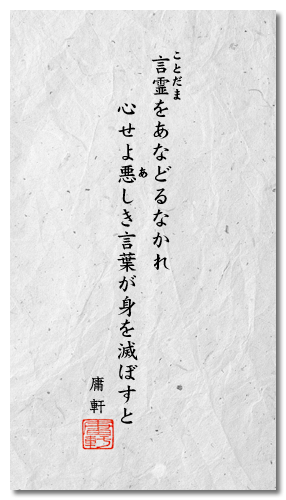 言霊をあなどるなかれ
ことだま
心せよ悪しき言葉が身を滅ぼすと
あ
庸軒
庸軒